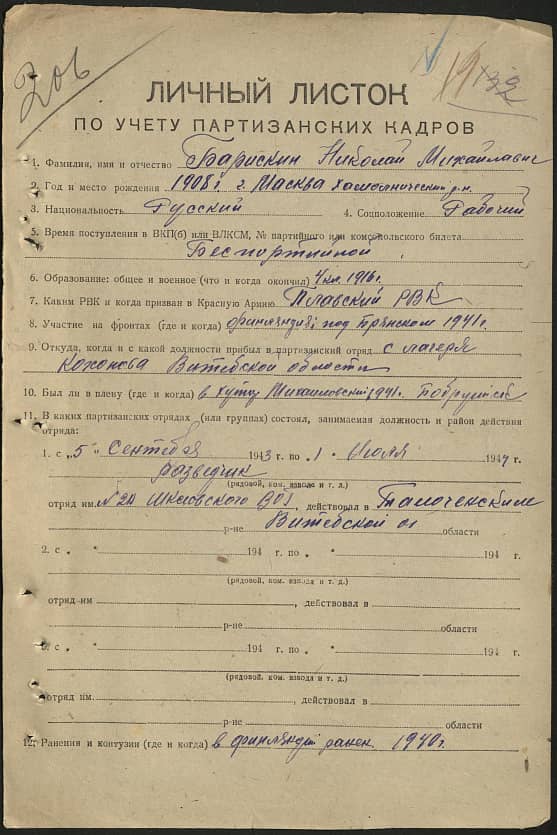 206
19
132
ЛИЧНЫЙ ЛИСТОК
ПО УЧЕТУ ПАРТИЗАНСКИХ КАДРОВ
1. Фамилия, имя и отчество Барискин Николай Михайлавич
2. Год и место рождения 1908 г. г. Масква
3. Национальность Русский 4. Соцположение Рабочий
5. Время поступления в ВКП(б) или ВЛКСМ, № партийного или комсомольского билета
Беспортийной
6. Образование: общее и военное (что и когда окончил) 4 кл. 1916 г.
7. Каким РВК и когда призван в Красную Армию Плавский РВК
8. Участие на фронтах (где и когда) финляндий под Брянском 1941 г.
9. Откуда, когда и с какой должности прибыл в партизанский отряд с лагеря
Коханова Витебской области
10. Был ли в плену (где и когда) в хуту Михаиловский 1941
11. В каких партизанских отрядах (или группах) состоял, занимаемая должность и район действия
отряда:
1. с „5" Сентебря 1943 г. по „1 " Июля 1944 г.
Розведчик
(рядовой, ком. взвода и т. д.)
отряд им. № 24 действовал в Талоченским
р-не Витебской ог области
2. с „ " 194 г. по „ " 194 г.
(рядовой, ком. взвода и т. д.)
отряд им. , действовал в
р-не области
3. с „ " 194 г. по „ " 194 г.
(рядовой, ком. взвода и т. д.)
отряд им. , действовал в
р-не области
12. Ранения и контузии (где и когда) в финляндий ранен 1940 г.